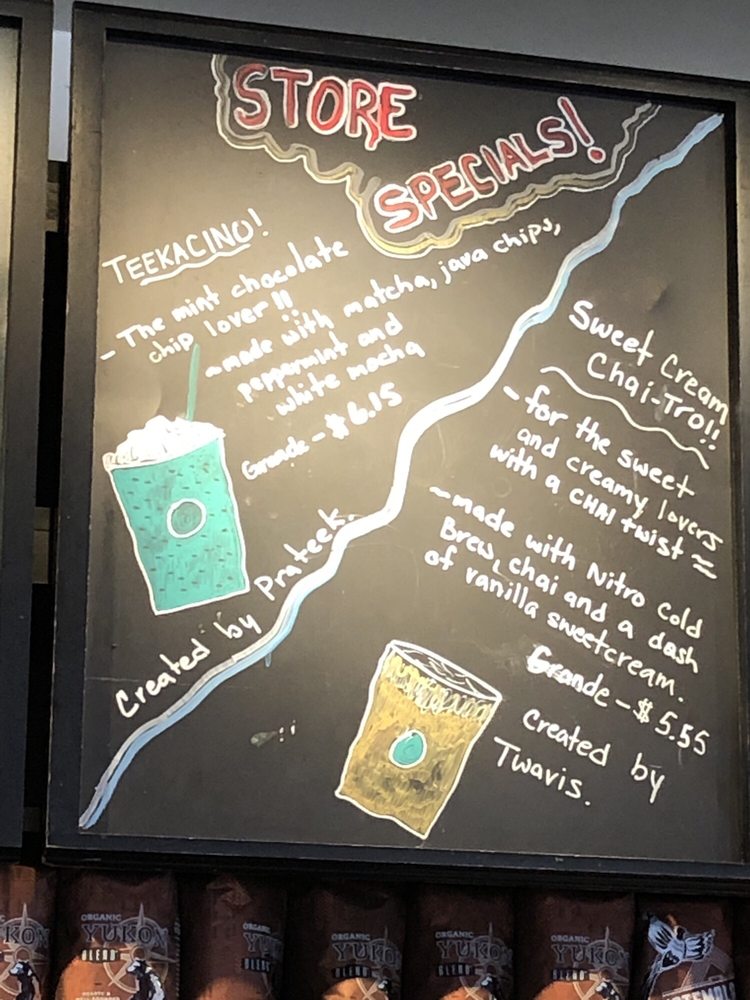 STORE
SPECIALS!
TEEKACINO!
- The mint chocolate
chip lover!!
- made with matcha, java chips,
peppermint and
white mocha
Grande - $6.15
Created by Prateek.
Sweet Cream
Chai-Tro!!
- for the sweet
and creamy lovers
with a CHAI twist
- made with Nitro Cold
Brew, chai and a dash
of vanilla sweetcream.
Grande - $5.55
Created by
Twavis.
ORGANIC
YUKON
BLEND
ORGANIC
YUKON
BLEND
ORGANIC
YUKON
BLEND
ORGANIC
YUKON
BLEND
ORGANIC
YUKON
BLEND